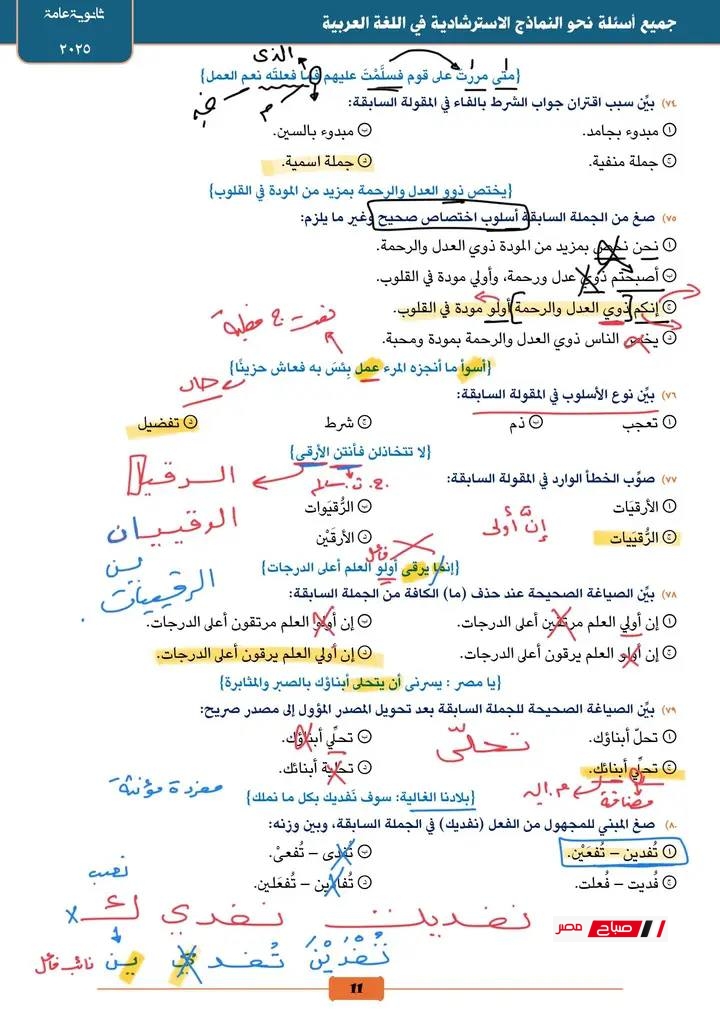 جميع أسئلة نحو النماذج الاسترشادية في اللغة العربية
ثانوية عامة
٢٠٢٥
الذى
{متى مررت على قوم فسلَّمْتَ عليهم فما فعلتَه نعم العمل}
م خبر
٧٤) بيِّن سبب اقتران جواب الشرط بالفاء في المقولة السابقة:
أ مبدوء بجامد.
ب مبدوء بالسين.
ج جملة منفية.
د جملة اسمية.
{يختص ذوو العدل والرحمة بمزيد من المودة في القلوب}
٧٥) صغ من الجملة السابقة أسلوب اختصاص صحيح وغير ما يلزم:
أ نحن نختص بمزيد من المودة ذوي العدل والرحمة.
ب أصبحتم ذوي عدل ورحمة، وأولي مودة في القلوب.
ج إنكم ذوي العدل والرحمة أولو مودة في القلوب.
د يختص الناس ذوي العدل والرحمة بمودة ومحبة.
نعت ج فعلية
{أسوأ ما أنجزه المرء عمل بِئسَ به فعاش حزينًا}
حال
٧٦) بيِّن نوع الأسلوب في المقولة السابقة:
أ تعجب
ب ذم
ج شرط
د تفضيل
{لا تتخاذلن فأنتن الأرقى}
٧٧) صوِّب الخطأ الوارد في المقولة السابقة:
ج. ث. سالم
أ الأرقيَات
ب الرُّقيَوات
ج الرُّقيَيات
د الأرقَيْن
إنَّ أولى
فاعل
{إنما يرقى أولو العلم أعلى الدرجات}
٧٨) بيِّن الصياغة الصحيحة عند حذف (ما) الكافة من الجملة السابقة:
أ إن أولي العلم مرتقين أعلى الدرجات.
ب إن أولو العلم مرتقون أعلى الدرجات.
ج إن أولو العلم يرقون أعلى الدرجات.
د إن أولي العلم يرقون أعلى الدرجات.
{يا مصر : يسرنى أن يتحلى أبناؤك بالصبر والمثابرة}
٧٩) بيِّن الصياغة الصحيحة للجملة السابقة بعد تحويل المصدر المؤول إلى مصدر صريح:
أ تحلّ أبناؤك.
ب تحلِّي أبناؤك.
ج تحلِّي أبنائك.
د تحلية أبنائك.
تحلّى
مضافة م. إليه
مفردة مؤنثة
{بلادنا الغالية: سوف نَفديك بكل ما نملك}
٨٠) صغ المبني للمجهول من الفعل (نفديك) في الجملة السابقة، وبين وزنه:
أ تُفدين – تُفعَيْن.
ب تُفدَى – تُفعىْ.
ج فُديت – فُعلت.
د تُفادَين – تُفعَلين.
نصب
نفديك نفدي كِ
تُفْدَيْنَ تُفد ي ين نائب فاعل
صباح مصر
11